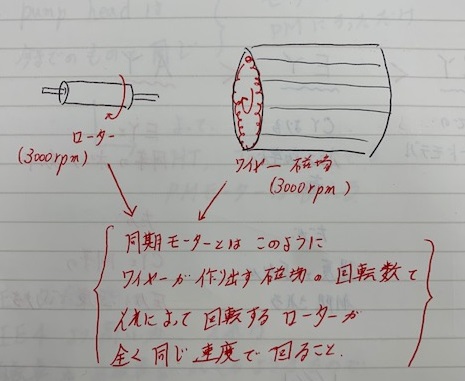 ローター
(3000rpm)
ワイヤー磁場
(3000rpm)
同期モーターとは このように
ワイヤーが作り出す磁場の回転数と
それによって回転するローターが
全く同じ速度で回ること.